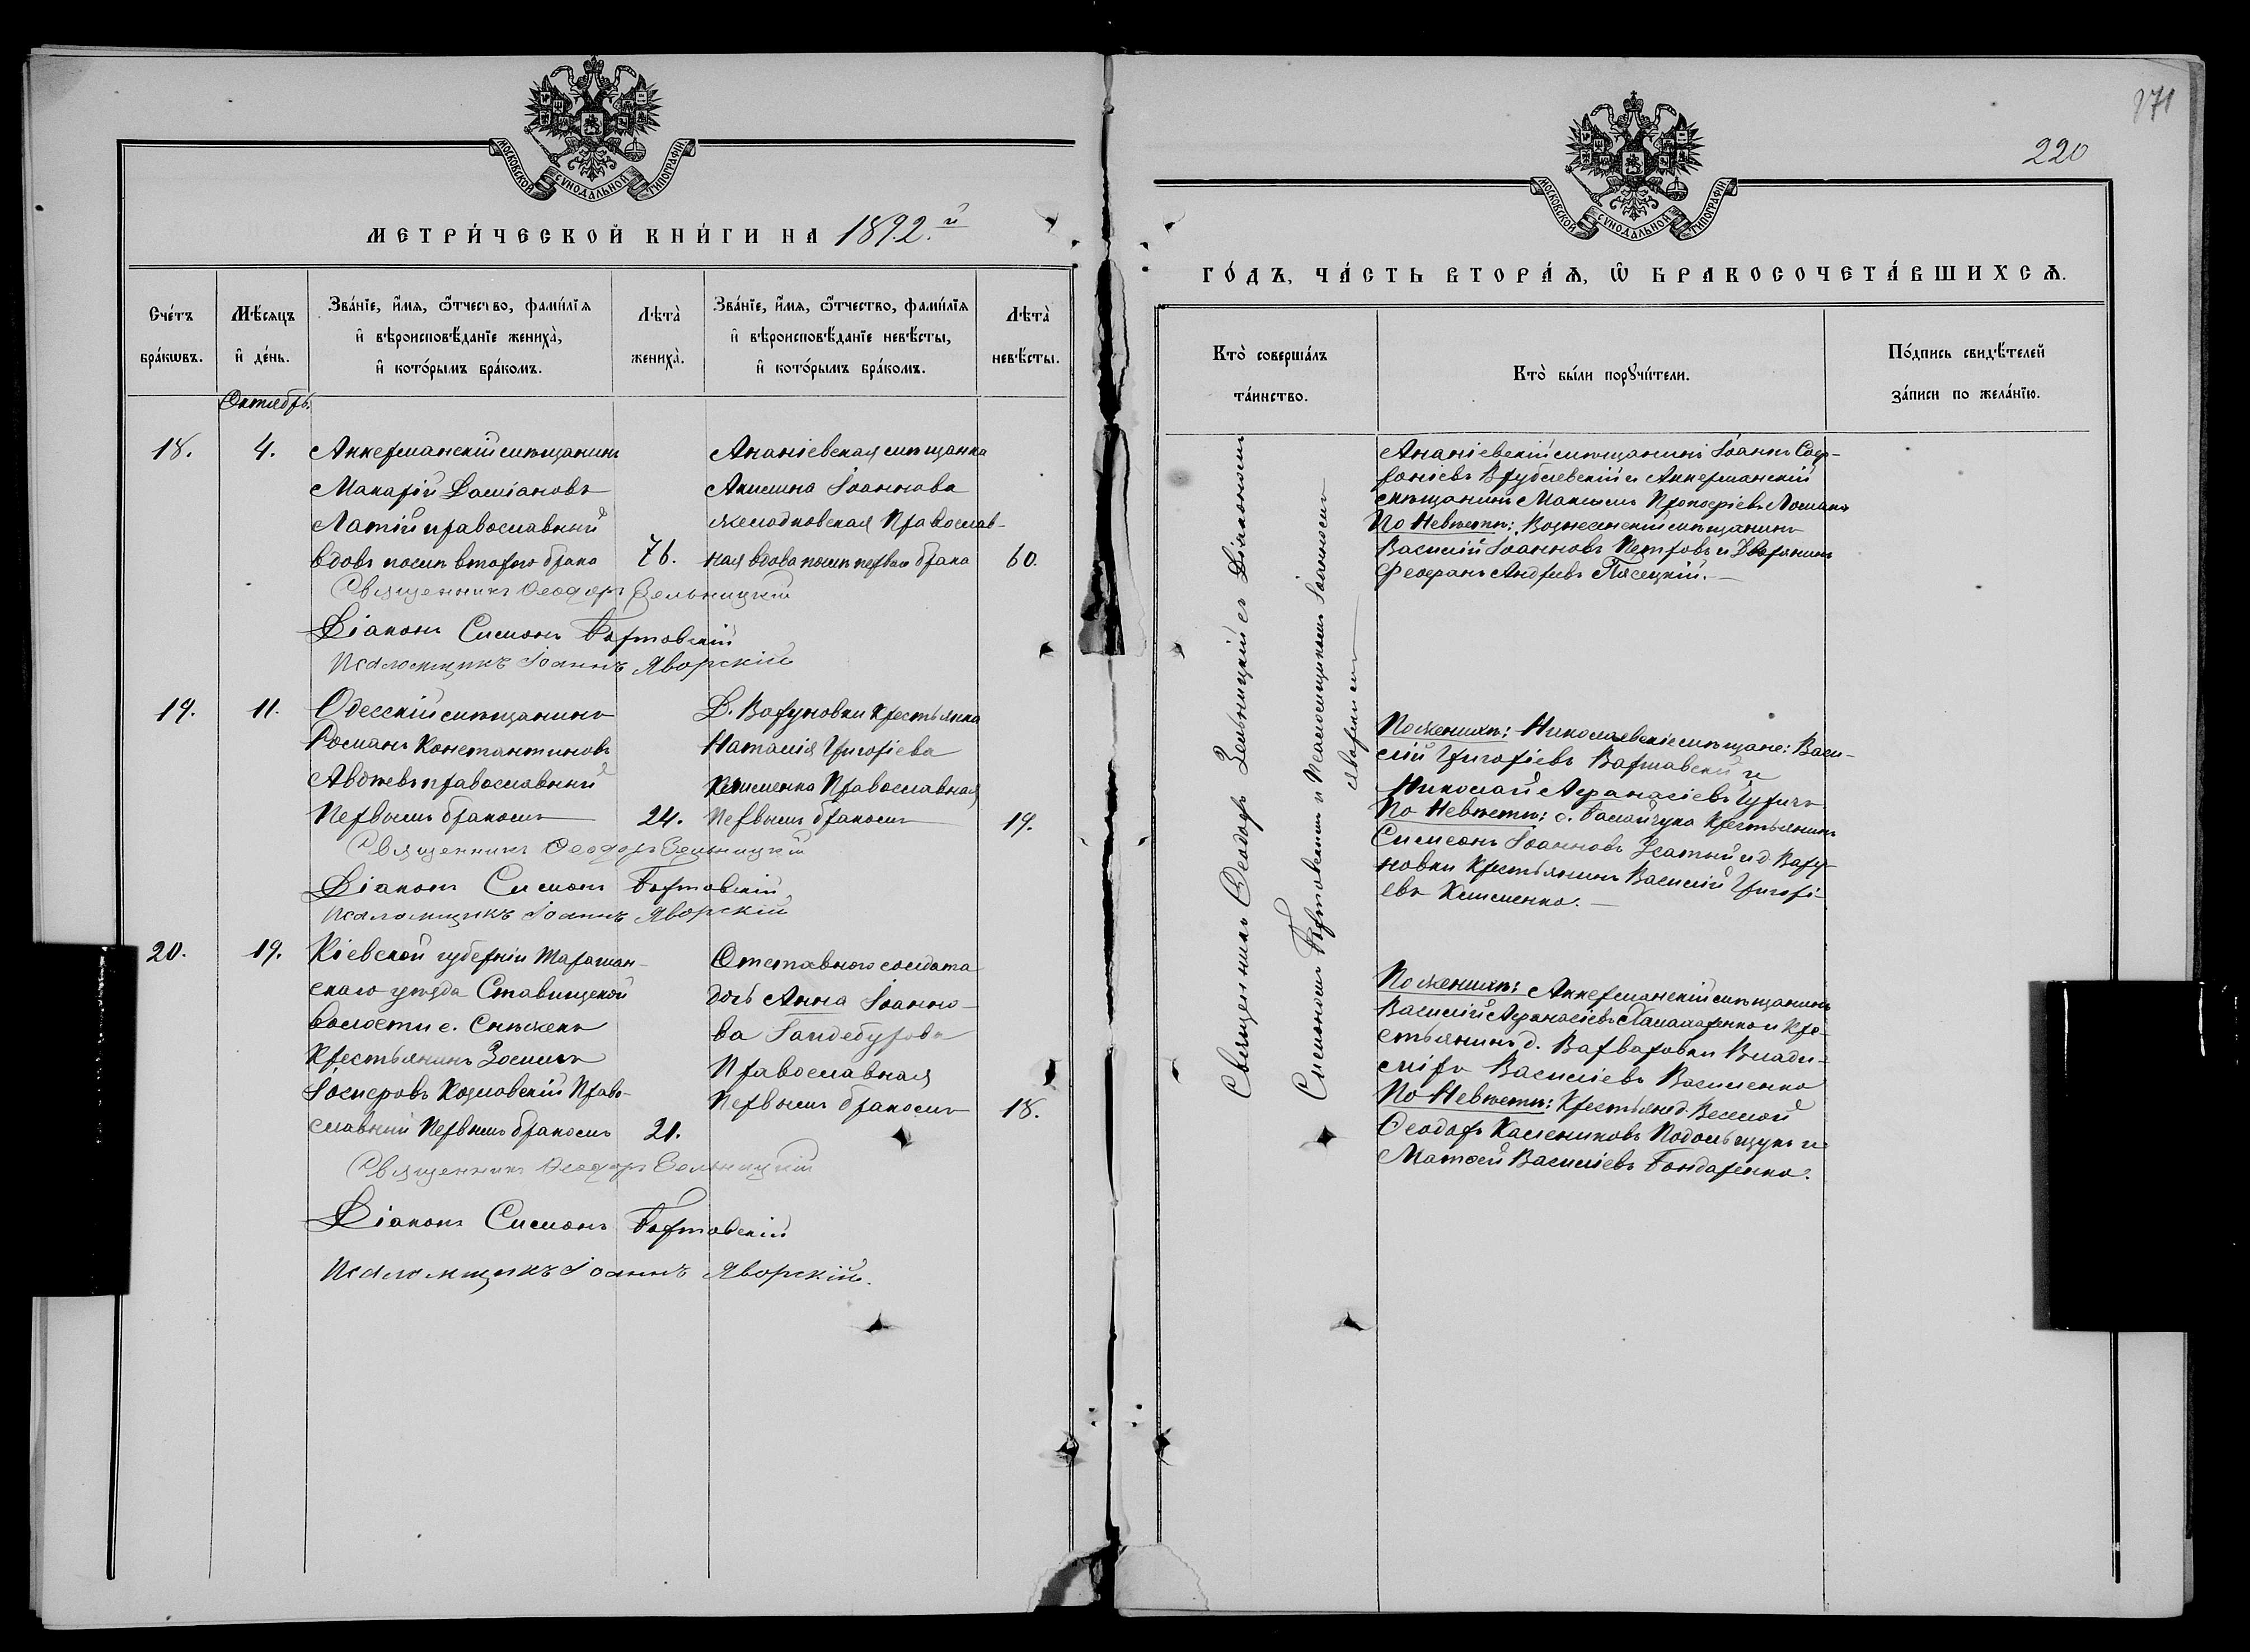 МОСКОВСКОЙ СѴНОДАЛЬНОЙ ТИПОГРАФІИ
МЕТРИ́ЧЕСКОЙ КНИ́ГИ НА 1892.й
Сче́тъ бра́кѡвъ.
Мѣ́сяцъ и҆ де́нь.
Зва́нїе, и҆́мя, ѻ҆́тчество, фами́лїя
и҆ вѣроисповѣ́данїе жениха̀,
и҆ кото́рымъ бра́комъ.
Лѣта̀ жениха̀.
Зва́нїе, и҆́мя, ѻ҆́тчество, фами́лїя
и҆ вѣроисповѣ́данїе невѣ́сты,
и҆ кото́рымъ бра́комъ.
Лѣта̀ невѣ́сты.
Октябрь.
18.
4.
Аккерманскій мѣщанинъ
Макарій Даміановъ
Латій православный
вдовъ послѣ второго брака
76.
Ананіевская мѣщанка
Акилина Іоаннова
Православ-
ная вдова послѣ перваго брака
60.
Священникъ Ѳеодоръ Зельницкій
Діаконъ Симеонъ Бортовскій
Псаломщикъ Іоаннъ Яворскій
19.
11.
Одесскій мѣщанинъ
Романъ Константиновъ
Авдѣевъ православный
Первымъ бракомъ
24.
Д. Варуновки крестьянка
Наталія Григоріева
Клименко Православная
Первымъ бракомъ
19.
Священникъ Ѳеодоръ Зельницкій
Діаконъ Симеонъ Бортовскій
Псаломщикъ Іоаннъ Яворскій
20.
19.
Кіевской губерніи Таращан-
скаго уѣзда Ставищской
волости с. Снѣжекъ
Крестьянинъ Зосимъ
Козловскій Право-
славный Первымъ бракомъ
21.
Отставного солдата
дочь Анна Іоанно-
ва Гандебурова
Православная
Первымъ бракомъ
18.
Священникъ Ѳеодоръ Зельницкій
Діаконъ Симеонъ Бортовскій
Псаломщикъ Іоаннъ Яворскій.
171
220
МОСКОВСКОЙ СѴНОДАЛЬНОЙ ТИПОГРАФІИ
ГО́ДЪ, ЧА́СТЬ ВТОРА́Ѧ, Ѡ҆ БРАКОСОЧЕТА́ВШИХСѦ.
Кто̀ соверша́лъ
та́инство.
Кто̀ бы́ли порꙋчи́тели.
По́дпись свидѣ́телей
за́писи по жела́нїю.
Священникъ Ѳеодоръ Зельницкій съ Діакономъ
Симеономъ Бортовскимъ и Псаломщикомъ Іоанномъ
Яворскимъ
Ананіевскій мѣщанинъ Іоаннъ Соф-
роніевъ Врублевскій и Аккерманскій
мѣщанинъ Максимъ Прокофіевъ
По Невѣстѣ: Вознесенскій мѣщанинъ
Василій Іоанновъ Петровъ и Дворянинъ
Феофанъ Андреевъ Пясецкій.
По женихѣ: Николаевскіе мѣщане: Васи-
лій Григоріевъ Варшавскій и
Николай Афанасіевъ
По Невѣстѣ: с. Баландчука Крестьянинъ
Симеонъ Іоанновъ и д. Вару-
новки Крестьянинъ Василій Григорі-
евъ Клименко.
По женихѣ: Аккерманскій мѣщанинъ
Василій Афанасіевъ Паламаренко и Кре-
стьянинъ д. Варваровки Влади-
міръ Василіевъ Василенко
По Невѣстѣ: Крестьяне д. Веселой
Ѳеодоръ Каленниковъ Подольчукъ и
Матѳей Василіевъ Бондаренко.